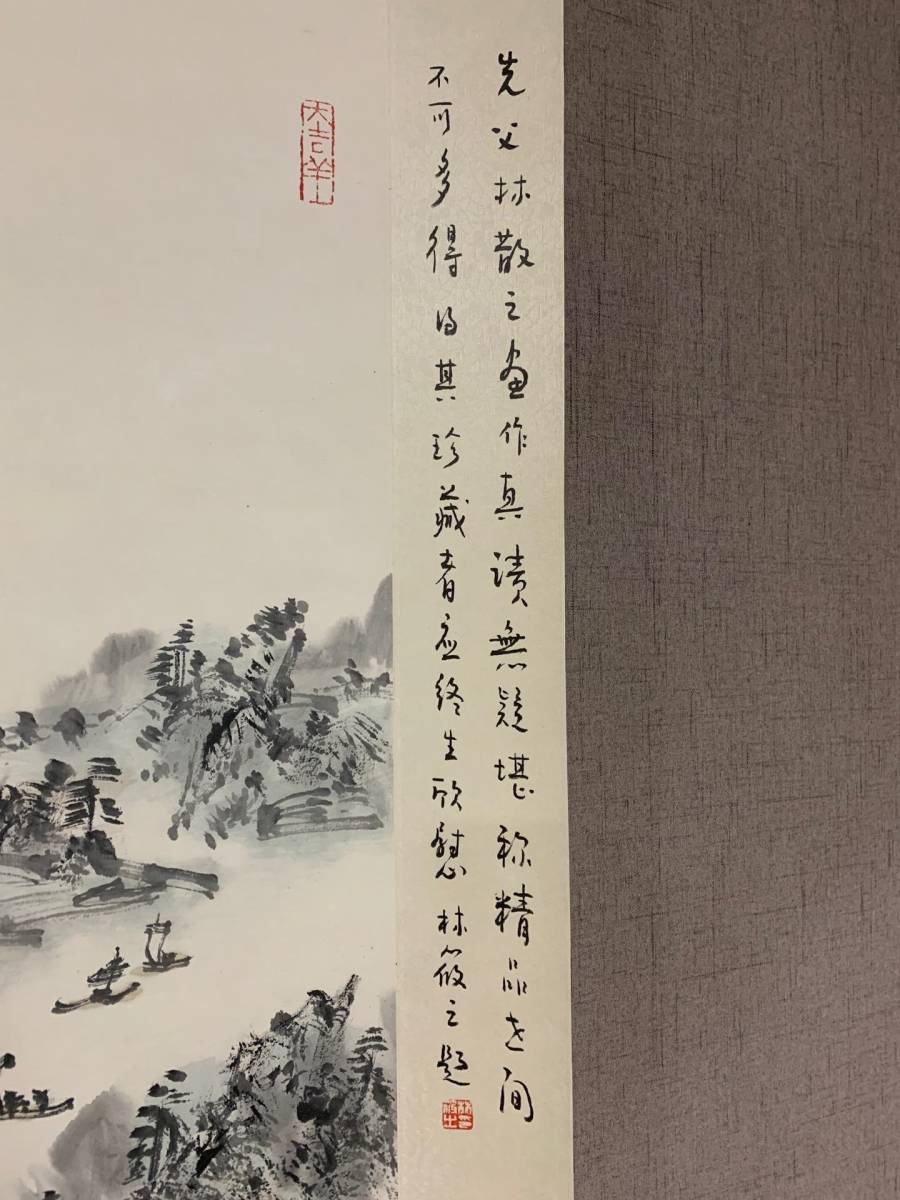 先父林散之画作真蹟無疑堪称精品世间
不可多得得其珍藏者应终生欣慰 林筱之题
大吉羊